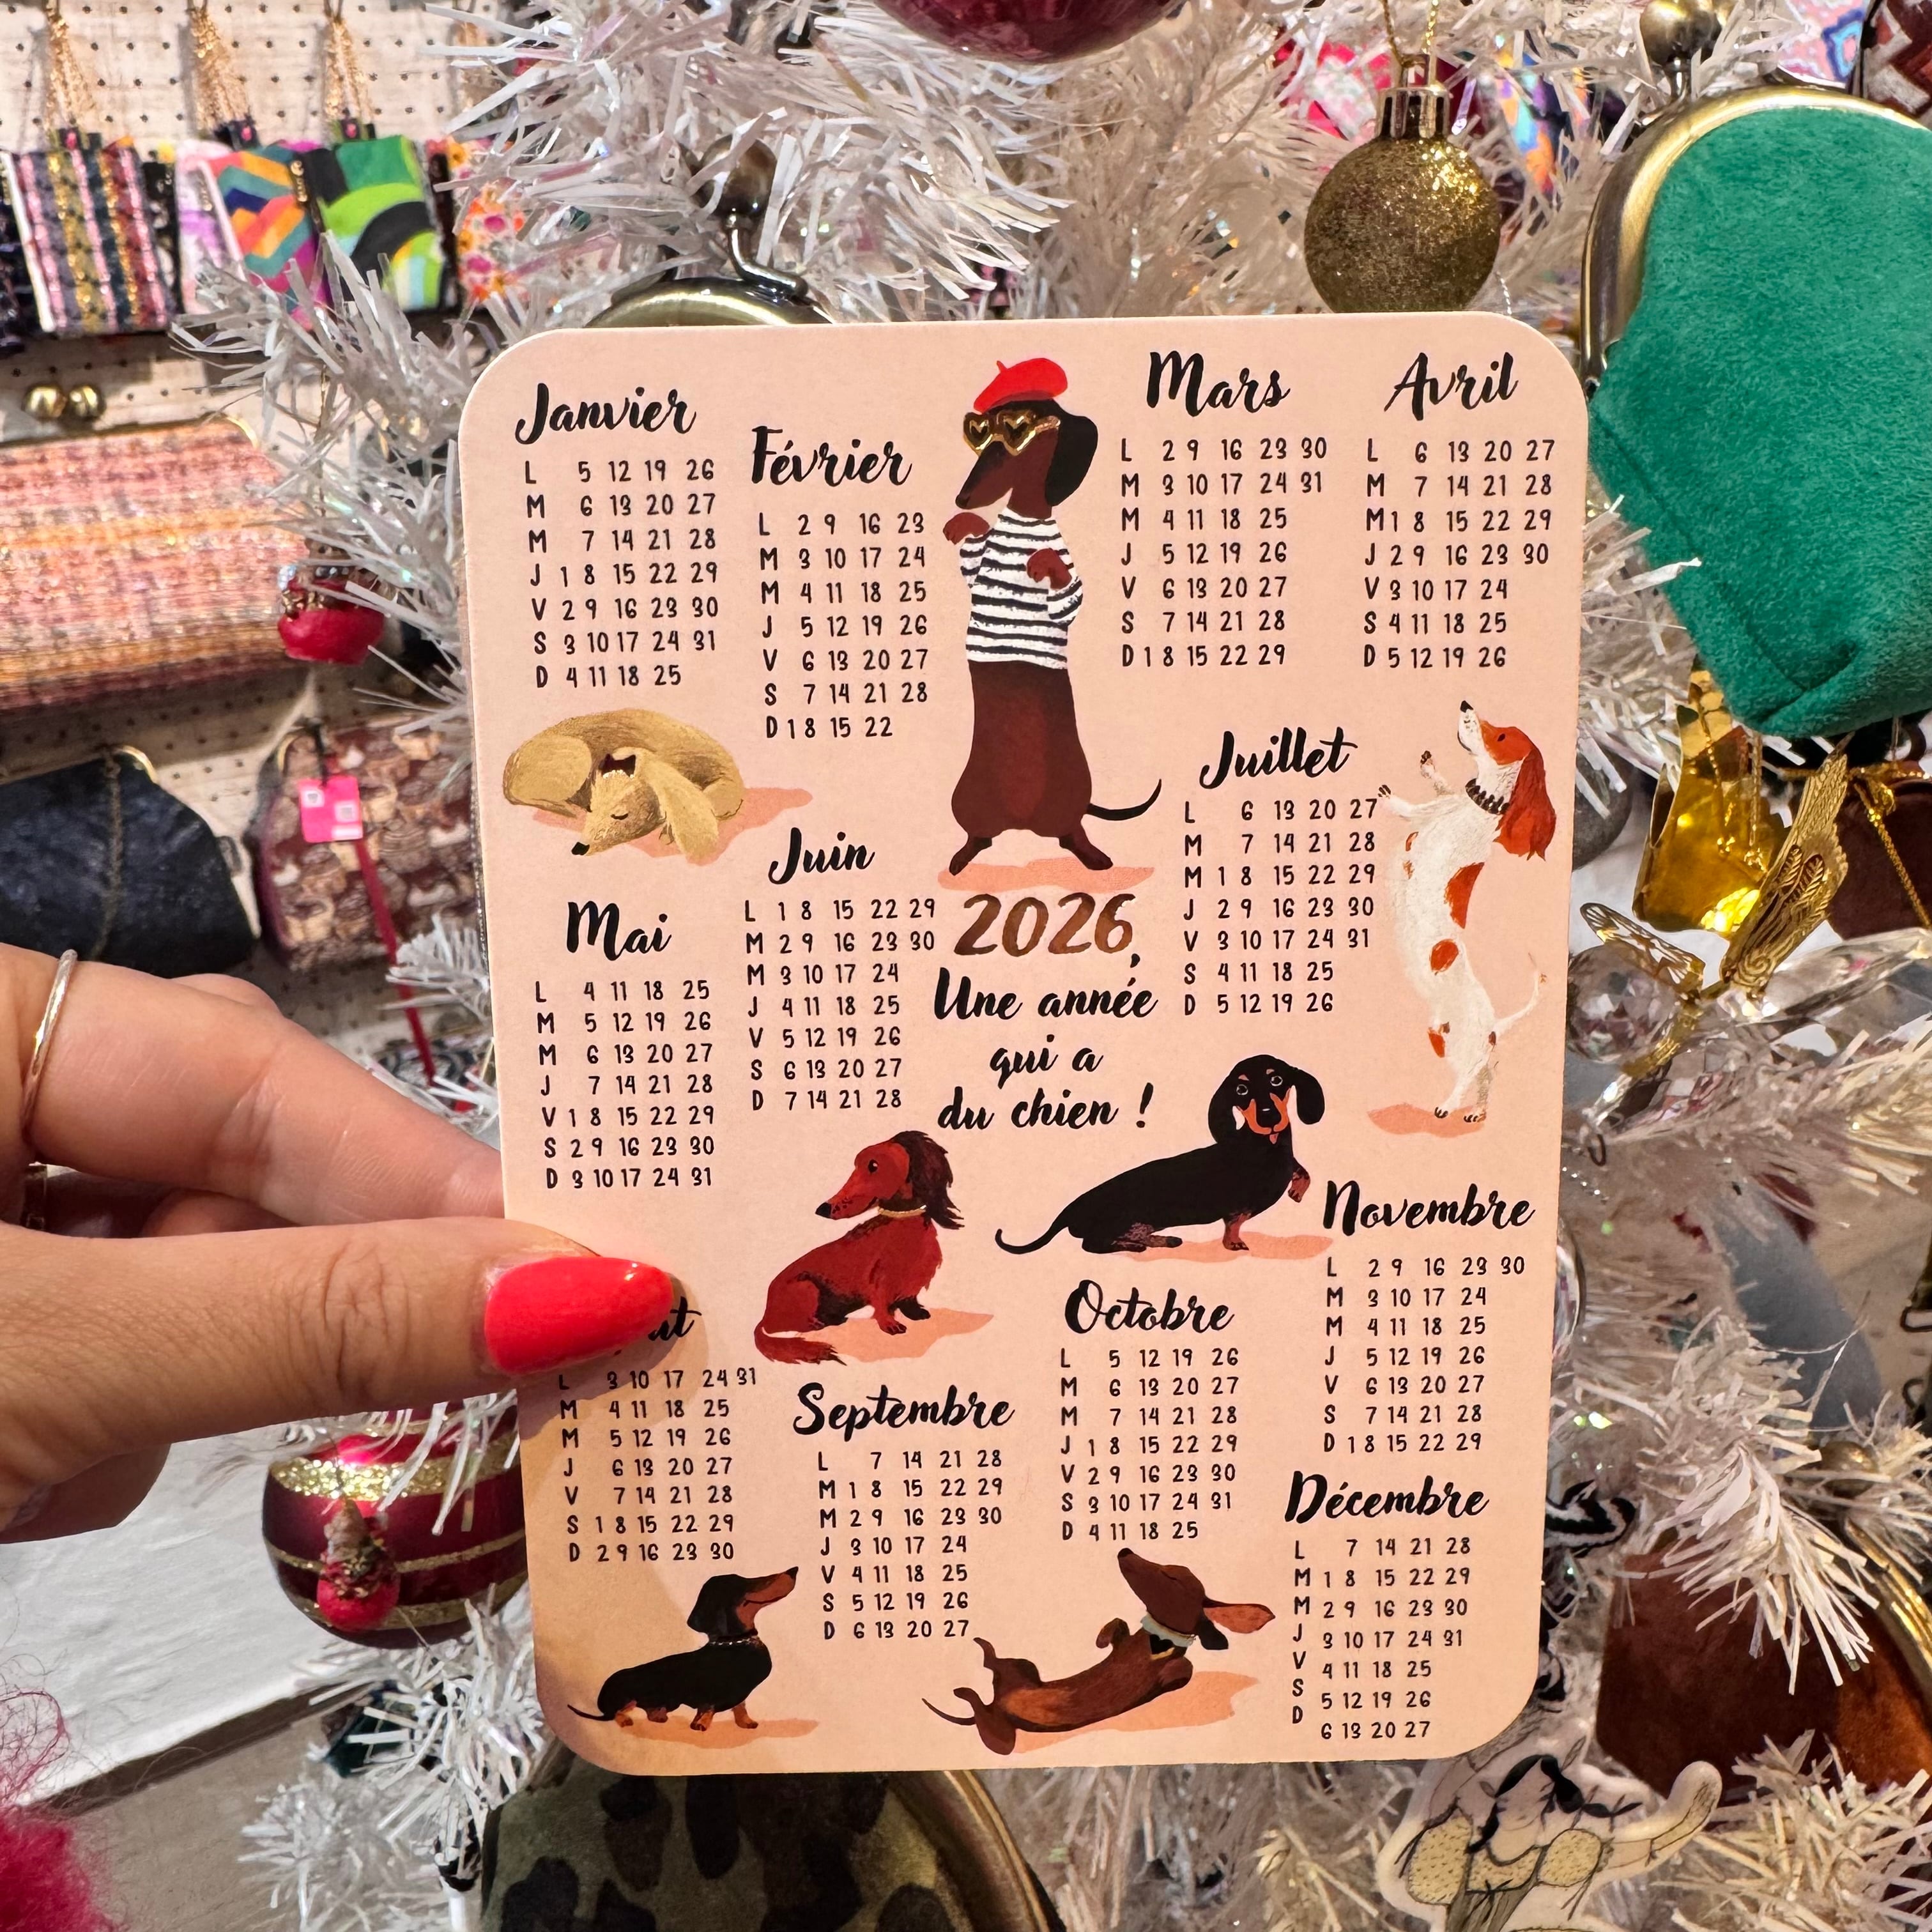 Janvier
L 5 12 19 26
M 6 13 20 27
M 7 14 21 28
J 1 8 15 22 29
V 2 9 16 23 30
S 3 10 17 24 31
D 4 11 18 25
Février
L 2 9 16 23
M 3 10 17 24
M 4 11 18 25
J 5 12 19 26
V 6 13 20 27
S 7 14 21 28
D 1 8 15 22
Mars
L 2 9 16 23 30
M 3 10 17 24 31
M 4 11 18 25
J 5 12 19 26
V 6 13 20 27
S 7 14 21 28
D 1 8 15 22 29
Avril
L 6 13 20 27
M 7 14 21 28
M 1 8 15 22 29
J 2 9 16 23 30
V 3 10 17 24
S 4 11 18 25
D 5 12 19 26
Mai
L 4 11 18 25
M 5 12 19 26
M 6 13 20 27
J 7 14 21 28
V 1 8 15 22 29
S 2 9 16 23 30
D 3 10 17 24 31
Juin
L 1 8 15 22 29
M 2 9 16 23 30
M 3 10 17 24
J 4 11 18 25
V 5 12 19 26
S 6 13 20 27
D 7 14 21 28
2026,
Une année
qui a
du chien !
Juillet
L 6 13 20 27
M 7 14 21 28
M 1 8 15 22 29
J 2 9 16 23 30
V 3 10 17 24 31
S 4 11 18 25
D 5 12 19 26
L 3 10 17 24 31
M 4 11 18 25
M 5 12 19 26
J 6 13 20 27
V 7 14 21 28
S 1 8 15 22 29
D 2 9 16 23 30
Septembre
L 7 14 21 28
M 1 8 15 22 29
M 2 9 16 23 30
J 3 10 17 24
V 4 11 18 25
S 5 12 19 26
D 6 13 20 27
Octobre
L 5 12 19 26
M 6 13 20 27
M 7 14 21 28
J 1 8 15 22 29
V 2 9 16 23 30
S 3 10 17 24 31
D 4 11 18 25
Novembre
L 2 9 16 23 30
M 3 10 17 24
M 4 11 18 25
J 5 12 19 26
V 6 13 20 27
S 7 14 21 28
D 1 8 15 22 29
Décembre
L 7 14 21 28
M 1 8 15 22 29
M 2 9 16 23 30
J 3 10 17 24 31
V 4 11 18 25
S 5 12 19 26
D 6 13 20 27